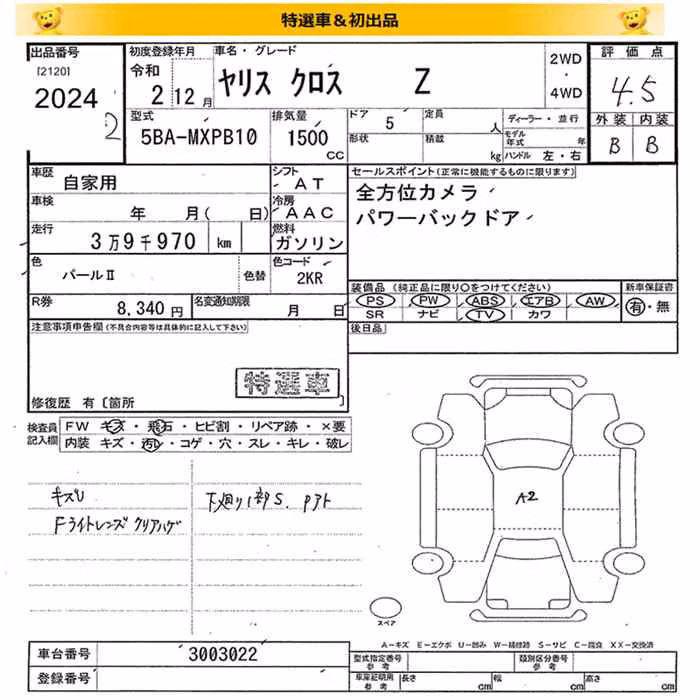 特選車＆初出品
出品番号
[2120]
2024
2
初度登録年月
令和
2 12月
車名・グレード
ヤリス クロス Z
2WD
・
4WD
評価点
4.5
外装 内装
B B
型式
5BA-MXPB10
排気量
1500
cc
ドア 5
形状
定員 人
積載 kg
ディーラー・並行
モデル年式 年
ハンドル 左・右
車歴
自家用
シフト
AT
車検
年 月( 日)
冷房
AAC
走行
3万9千970 km
燃料
ガソリン
色
パールⅡ
色替
色コード
2KR
R券
8,340円
名変通知期限
月 日
セールスポイント(正常に機能するものに限ります)
全方位カメラ
パワーバックドア
装備品 (純正品に限り○をつけてください)
PS PW ABS エアB AW
SR ナビ TV カワ
新車保証書
有・無
後日品
注意事項申告欄(不具合内容等は具体的に記入して下さい)
特選車
修復歴 有〔箇所
検査員
記入欄
FW キズ・飛石・ヒビ割・リペア跡・×要
内装 キズ・汚レ・コゲ・穴・スレ・キレ・破レ
キズU
Fライトレンズ クリアハゲ
下廻り1部S. Pアト
A2
スペア
A－キズ E－エクボ U－凹み W－補修跡 S－サビ C－腐食 XX－交換済
車台番号
3003022
登録番号
型式指定番号
参考
類別区分番号
参考
車庫証明用
参考
長さ cm
幅 cm
高さ cm